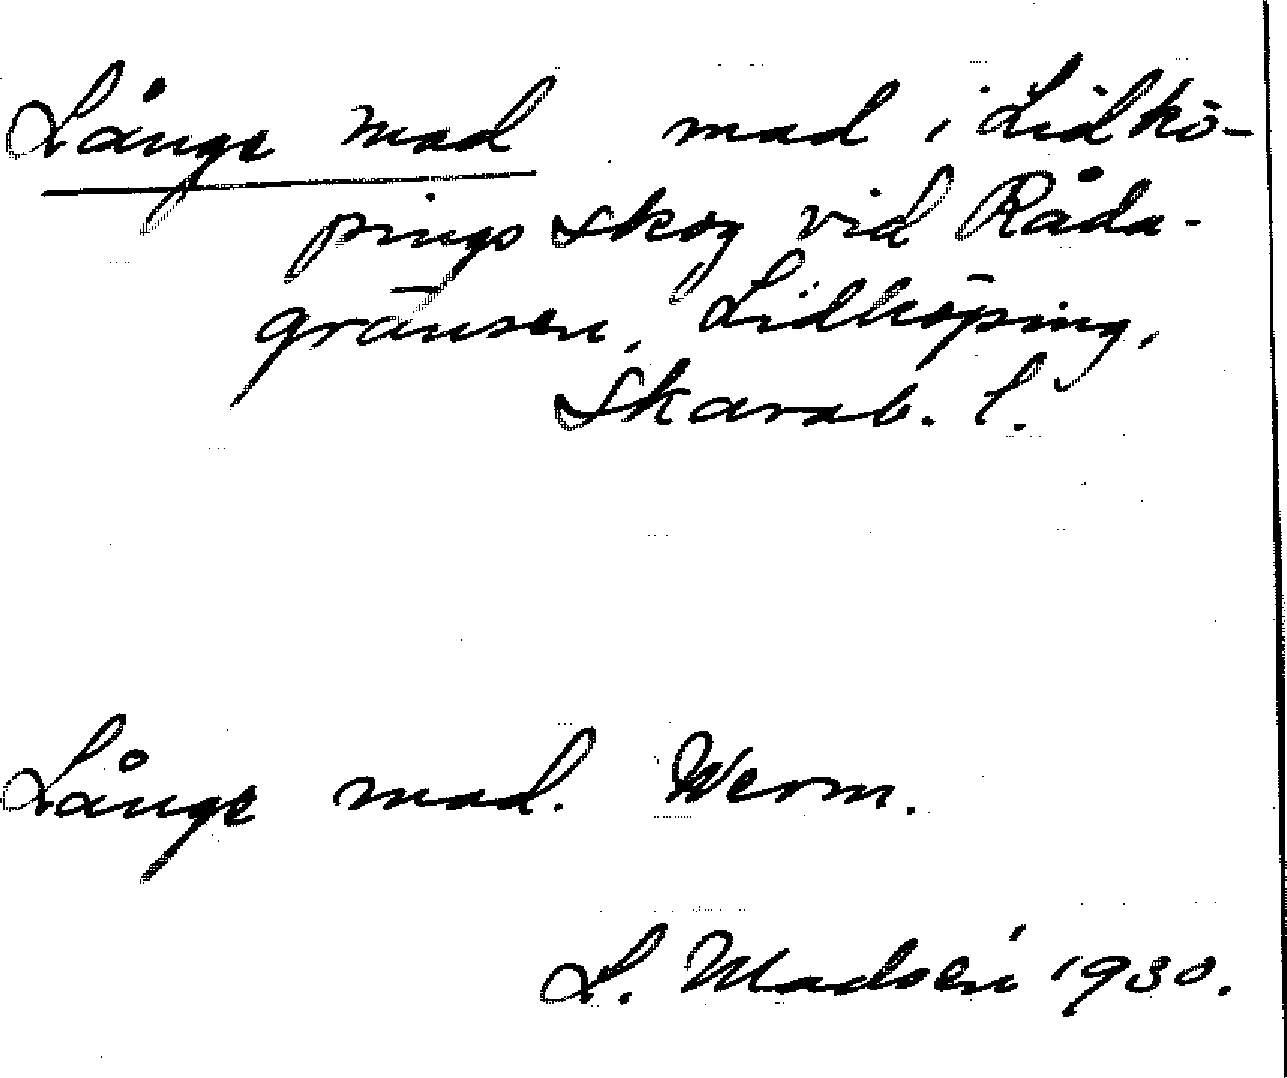 Långe mad mad i Lidkö-
pings skog vid Råda-
gränsen, Lidköping,
Skarab. l.
Långe mad. Werm.
L. Madsén 1930.